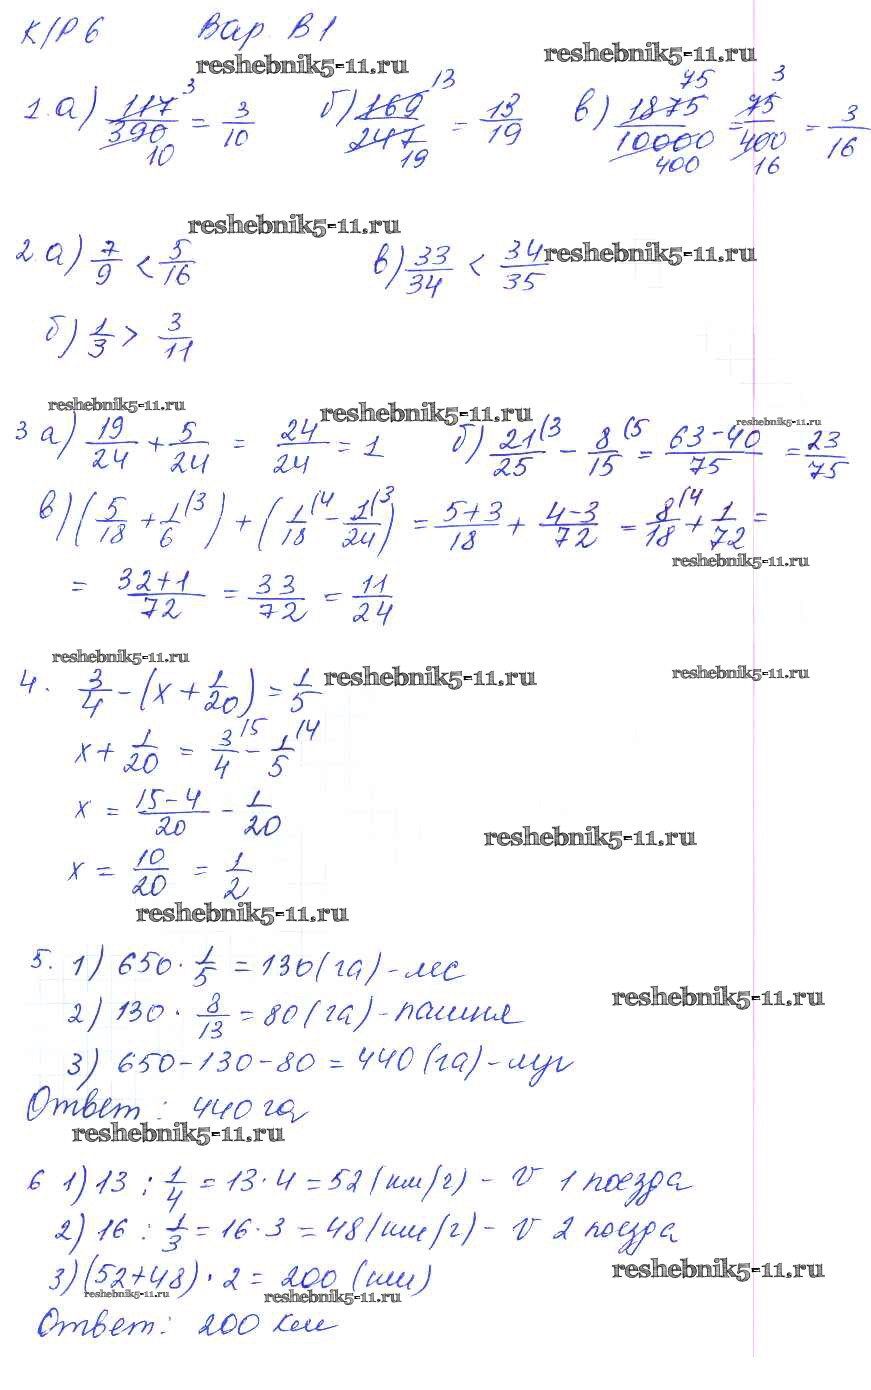 К/Р 6 Вар. В1
reshebnik5-11.ru reshebnik5-11.ru
1. а) 117/390 = 3/10 б) 169/247 = 13/19 в) 1875/10000 = 75/400 = 3/16
3 10 13 19 75 400 3 16
reshebnik5-11.ru
2. а) 7/9 < 5/16 в) 33/34 < 34/35 reshebnik5-11.ru
б) 1/3 > 3/11
reshebnik5-11.ru reshebnik5-11.ru reshebnik5-11.ru
3 а) 19/24 + 5/24 = 24/24 = 1 б) 21/25 (3 - 8/15 (5 = 63-40/75 = 23/75
в) (5/18 + 1/6 (3) + (1/18 (4 - 1/24 (3) = 5+3/18 + 4-3/72 = 8/18 (4 + 1/72 =
reshebnik5-11.ru
= 32+1/72 = 33/72 = 11/24
reshebnik5-11.ru
4. 3/4 - (x + 1/20) = 1/5 reshebnik5-11.ru reshebnik5-11.ru
x + 1/20 = 3/4 (5 - 1/5 (4
x = 15-4/20 - 1/20
reshebnik5-11.ru
x = 10/20 = 1/2
reshebnik5-11.ru
5. 1) 650 · 1/5 = 130 (га) - лес
reshebnik5-11.ru
2) 130 · 8/13 = 80 (га) - пашня
3) 650 - 130 - 80 = 440 (га) - луг
Ответ: 440 га
reshebnik5-11.ru
6 1) 13 : 1/4 = 13 · 4 = 52 (км/г) - v 1 поезда
2) 16 : 1/3 = 16 · 3 = 48 (км/г) - v 2 поезда
3) (52+48) · 2 = 200 (км) reshebnik5-11.ru
reshebnik5-11.ru reshebnik5-11.ru
Ответ: 200 км